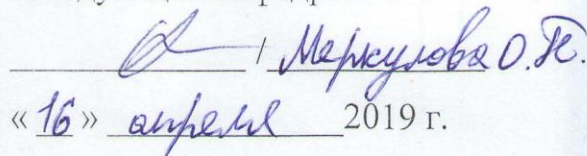 / Меркулова О.П.
«16» апреля 2019 г.